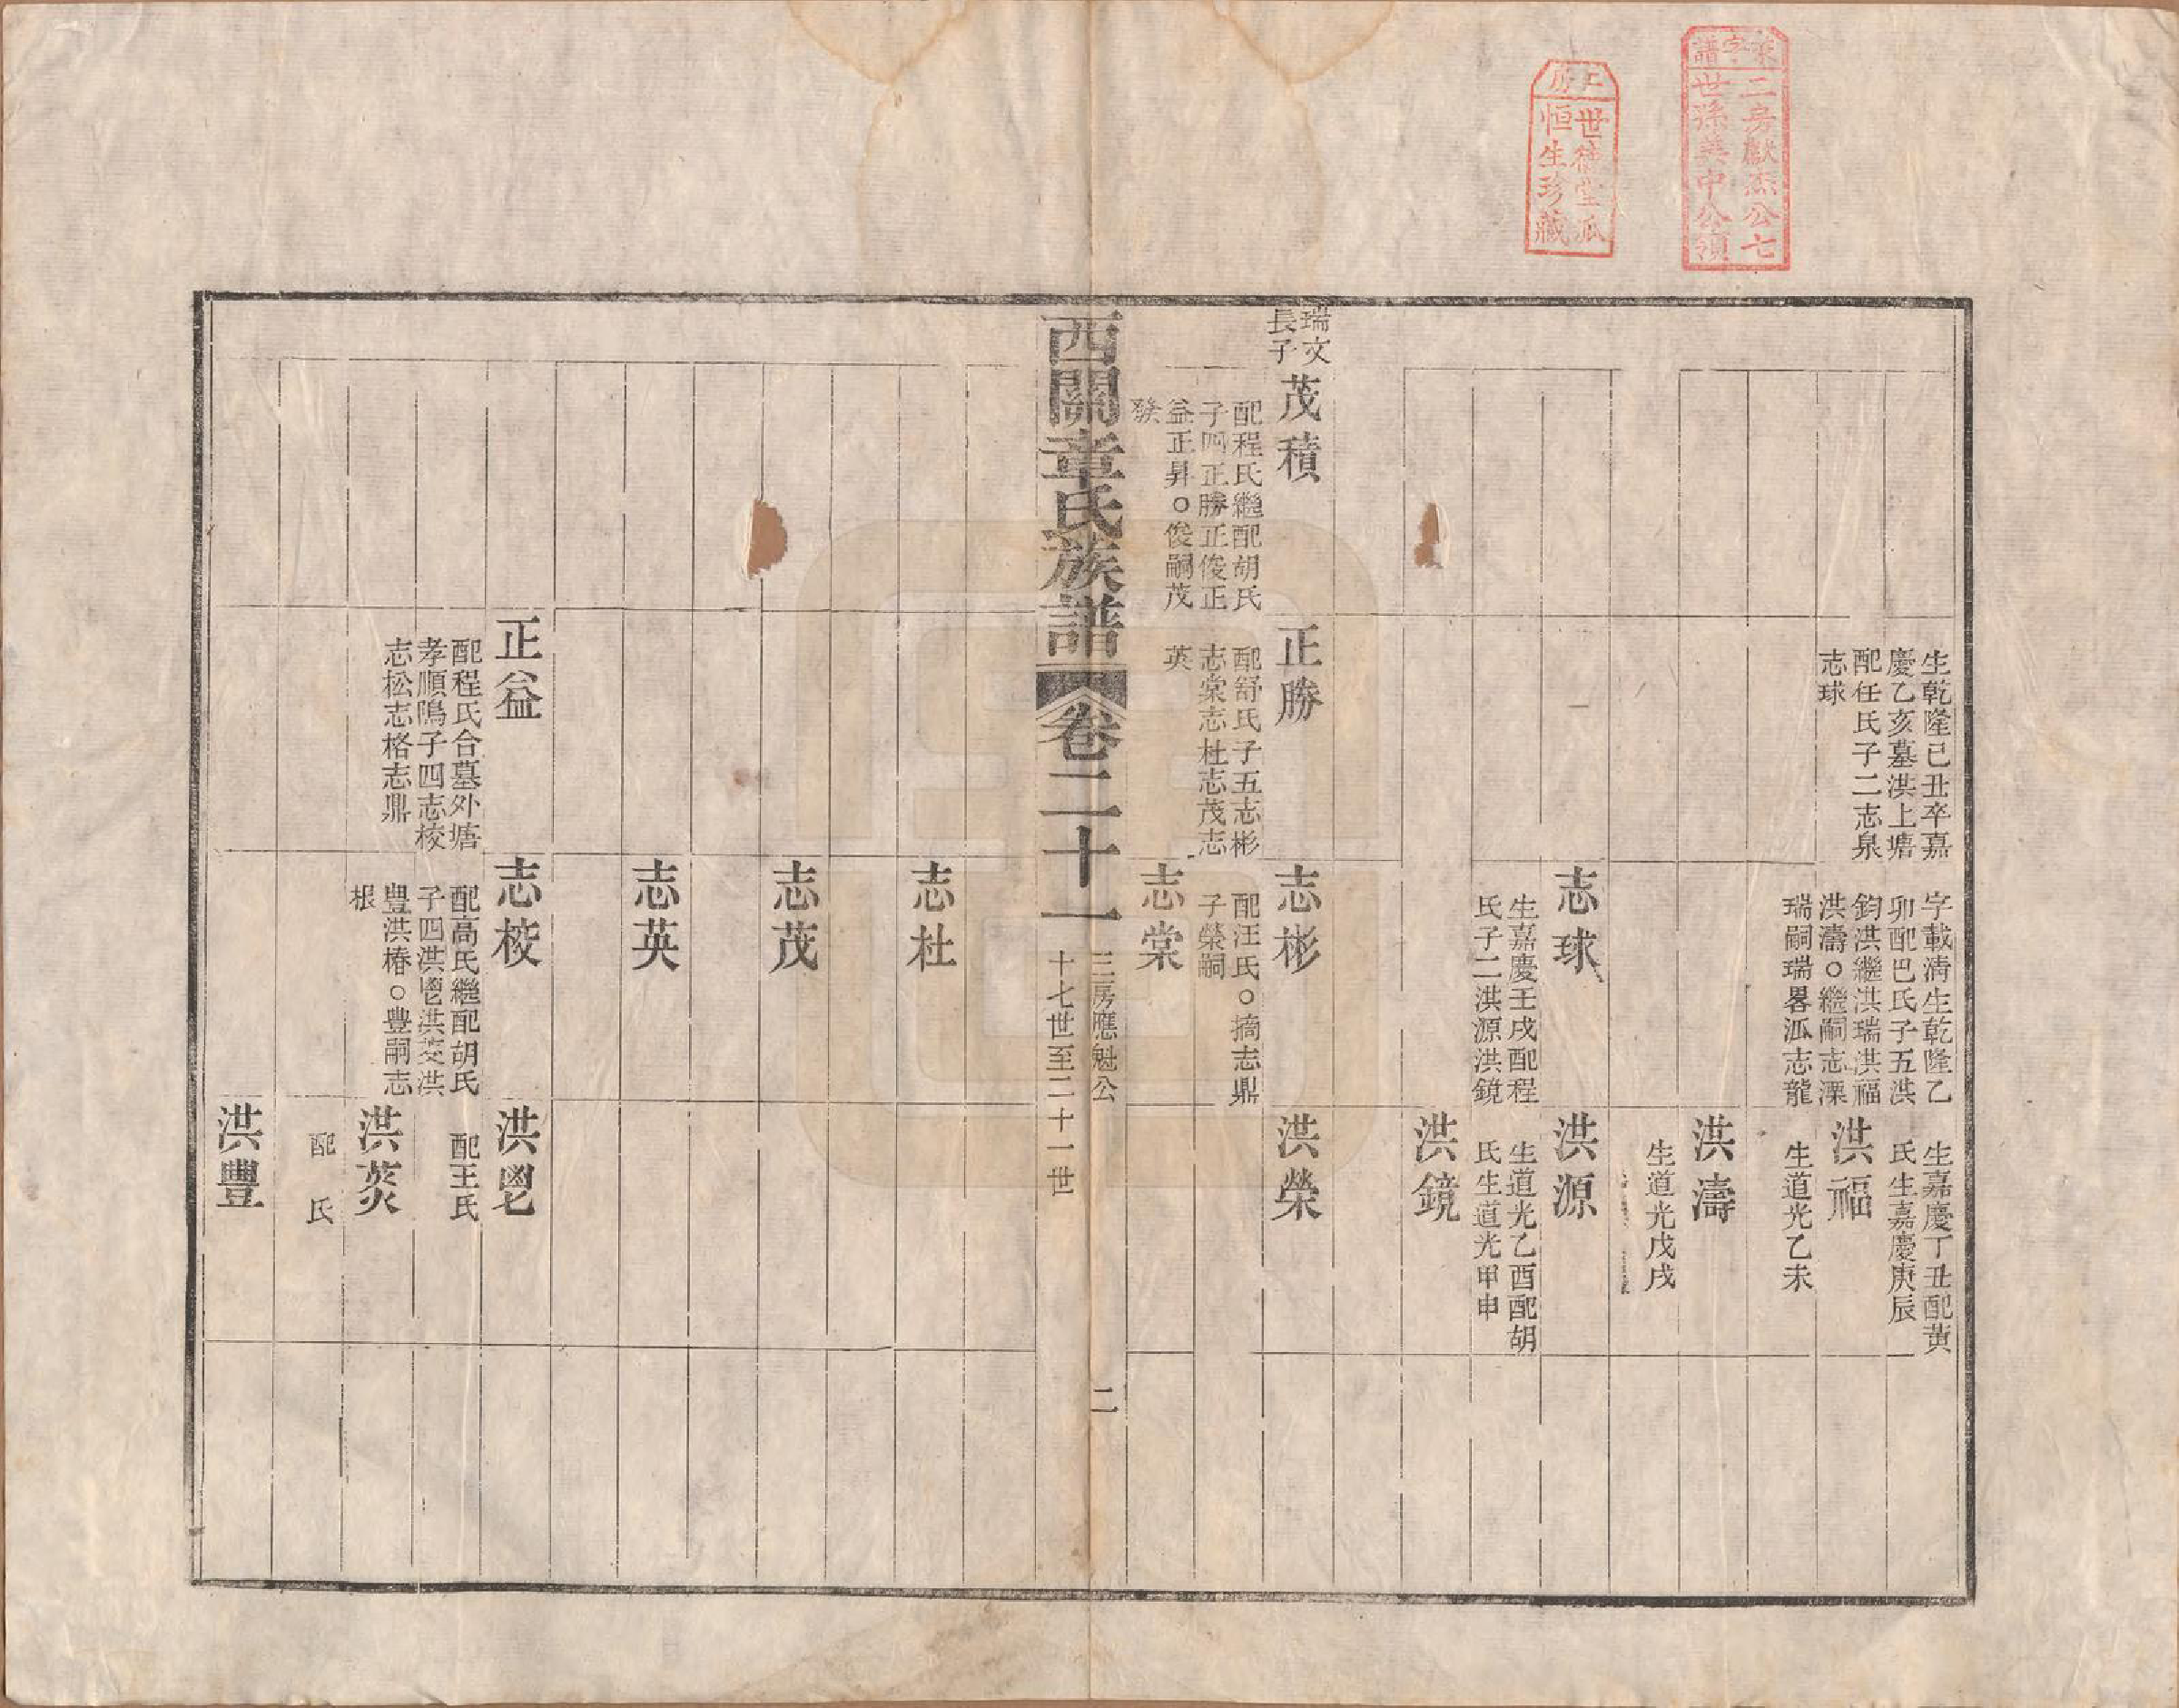 二房獻杰公七
世孫美中公領
世德堂派
恒生珍藏
生乾隆已丑卒嘉
慶乙亥墓洪上塘
配任氏子二志泉
志球
字載淸生乾隆乙
卯配巴氏子五洪
鈞洪繼洪瑞洪福
洪濤○繼嗣志溧
瑞嗣瑞畧派志龍
生嘉慶丁丑配黃
氏生嘉慶庚辰
洪福
生道光乙未
洪濤
生道光戊戌
志球
生嘉慶壬戌配程
氏子二洪源洪鏡
洪源
生道光乙酉配胡
氏生道光甲申
洪鏡
瑞文
長子
茂積
配程氏繼配胡氏
子四正勝正俊正
益正昇○俊嗣茂
發
正勝
配舒氏子五志彬
志棠志杜志茂志
英
志彬
配汪氏○摘志鼎
子榮嗣
洪榮
志棠
西關章氏族譜
卷二十一
三房應魁公
十七世至二十一世
二
志杜
志茂
志英
正益
配程氏合墓外塘
孝順隝子四志校
志松志格志鼎
志校
配高氏繼配胡氏
子四洪鬯洪芰洪
豐洪椿○豐嗣志
根
洪鬯
配王氏
洪
配 氏
洪豐